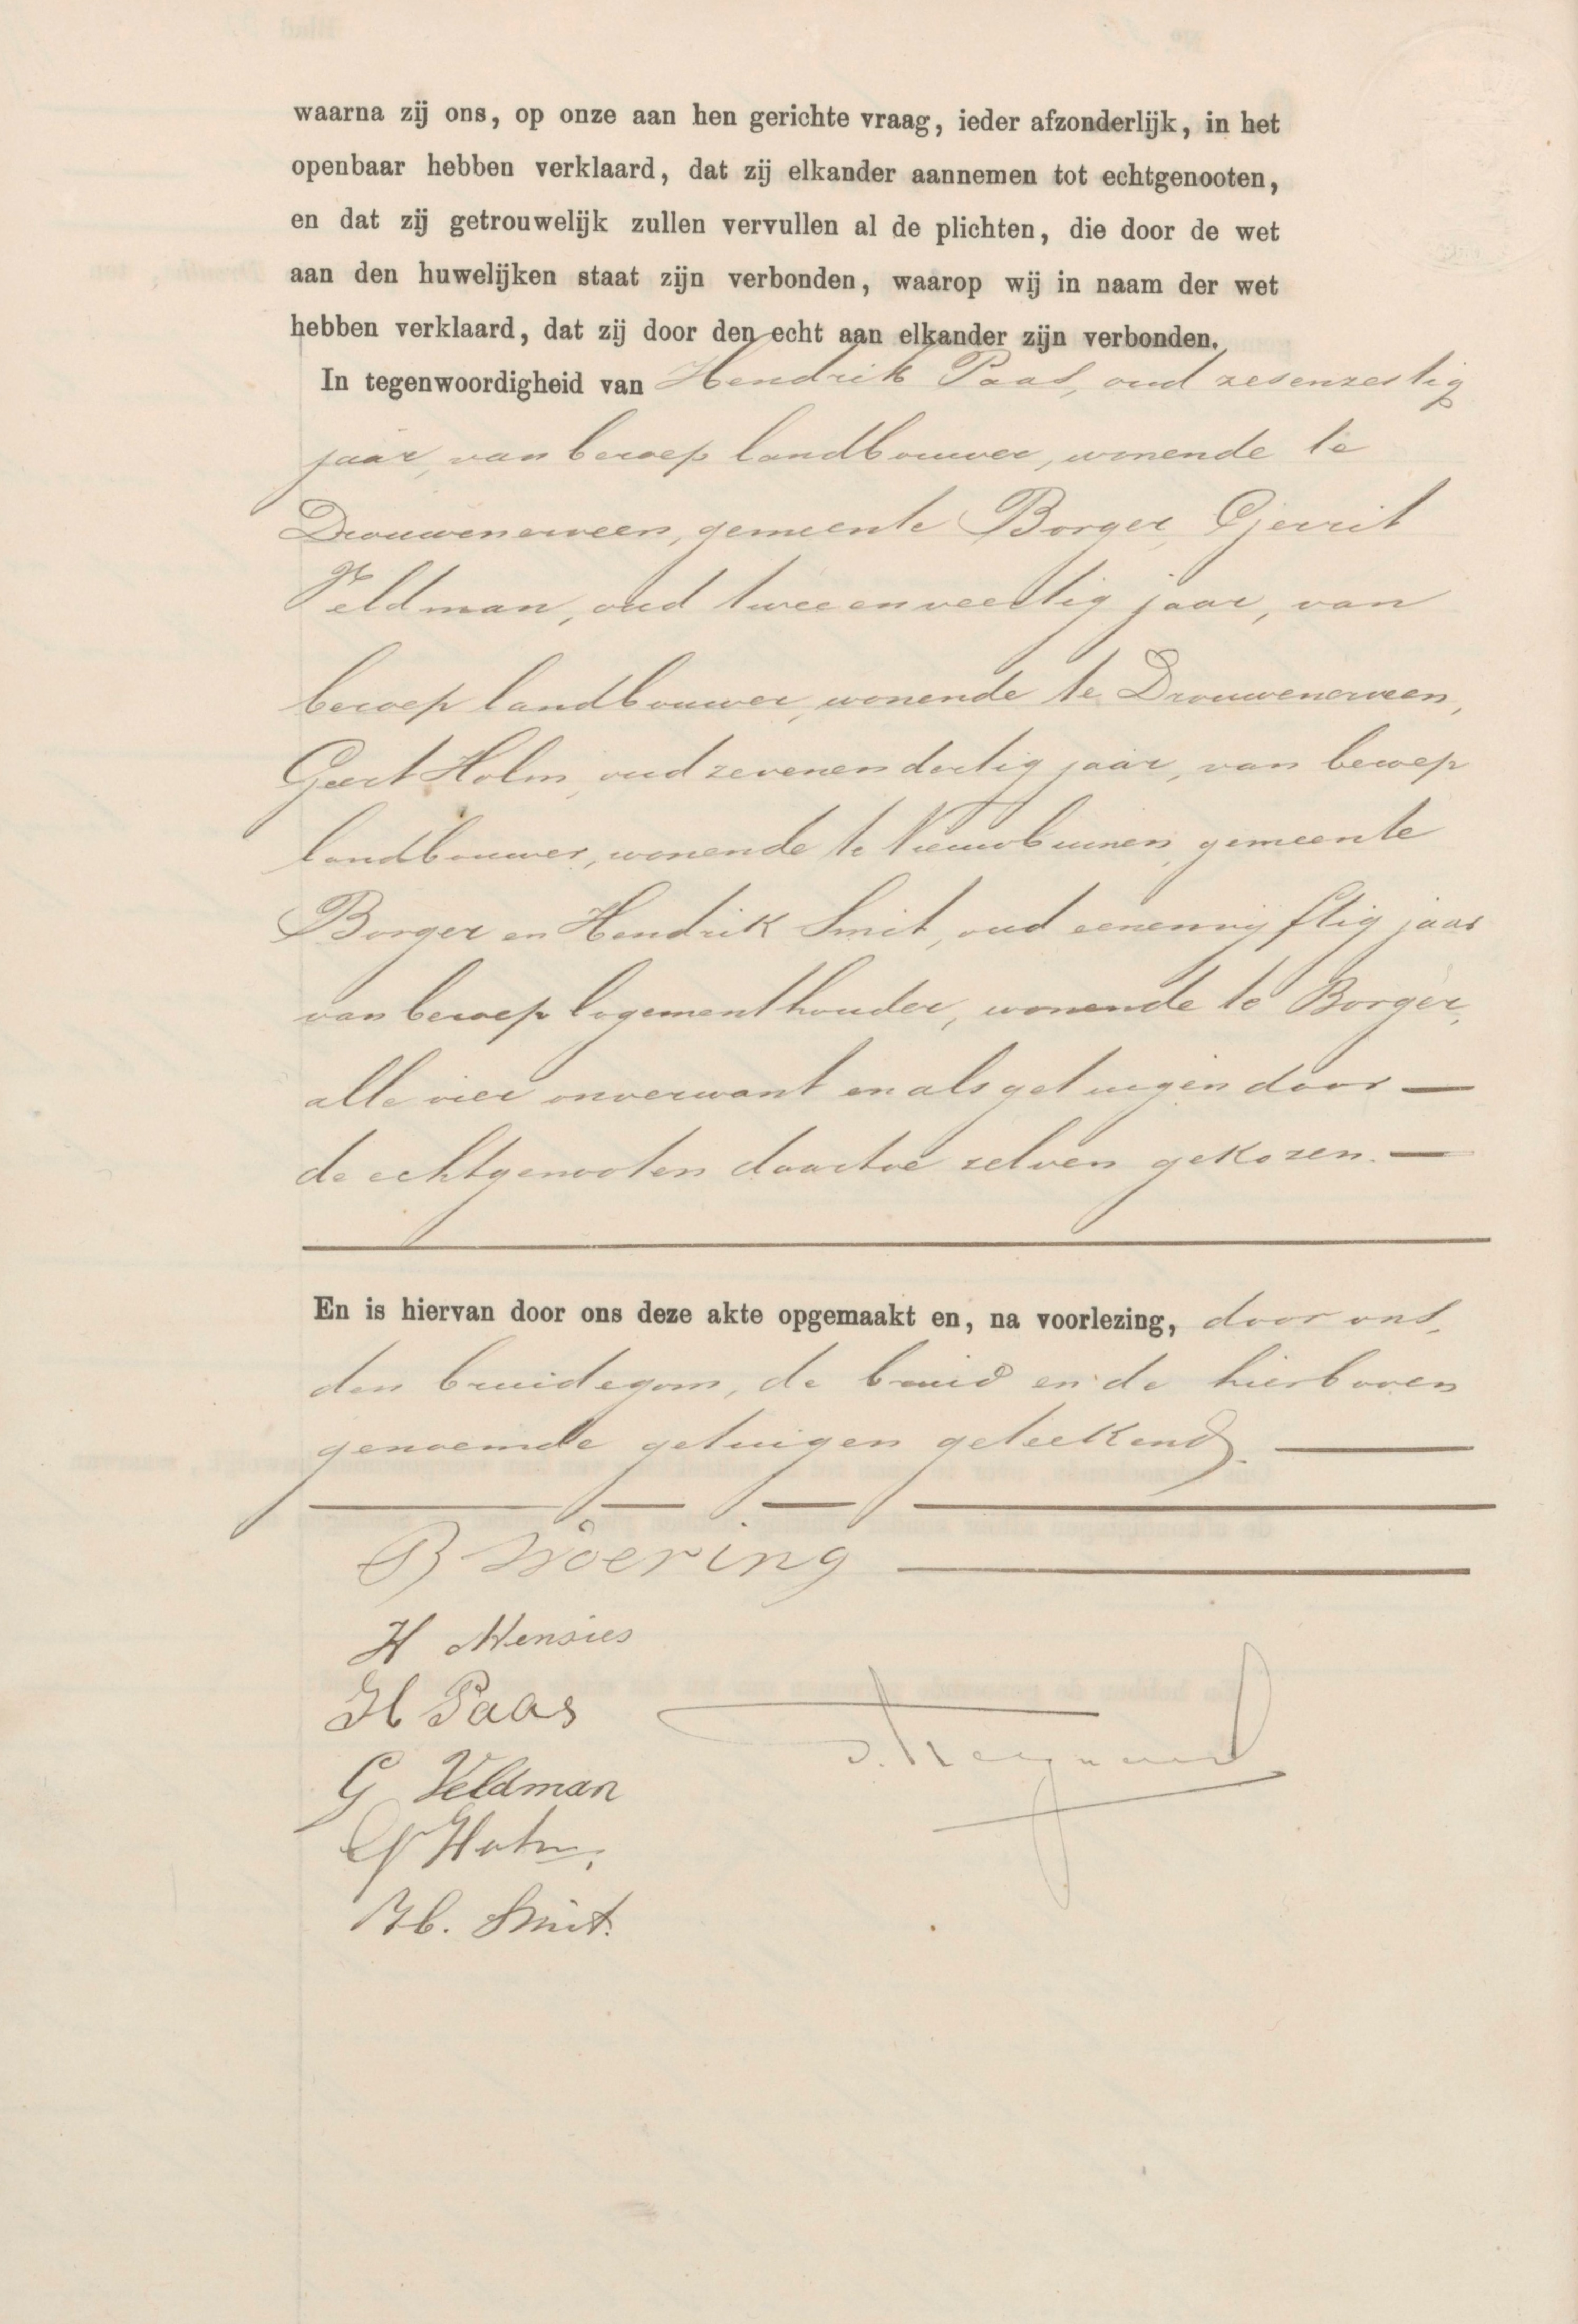 waarna zij ons, op onze aan hen gerichte vraag, ieder afzonderlijk, in het
openbaar hebben verklaard, dat zij elkander aannemen tot echtgenooten,
en dat zij getrouwelijk zullen vervullen al de plichten, die door de wet
aan den huwelijken staat zijn verbonden, waarop wij in naam der wet
hebben verklaard, dat zij door den echt aan elkander zijn verbonden.
In tegenwoordigheid van Hendrik Paas, oud zesenzestig
jaar, van beroep landbouwer, wonende te
Drouwenerveen, gemeente Borger, Gerrit
Veldman, oud tweeenveertig jaar, van
beroep landbouwer, wonende te Drouwenerveen,
Geert Holm, oud zevenendertig jaar, van beroep
landbouwer, wonende te Nieuwbuinen, gemeente
Borger en Hendrik Smit, oud eenenvijftig jaar
van beroep logementhouder, wonende te Borger,
alle vier onverwant en als getuigen door
de echtgenooten daartoe zelven gekozen.
En is hiervan door ons deze akte opgemaakt en, na voorlezing, door ons,
den bruidegom, de bruid en de hierboven
genoemde getuigen geteekend.
B Woering
H Mensies
H Paas
G Veldman
G Holm.
H. Smit.